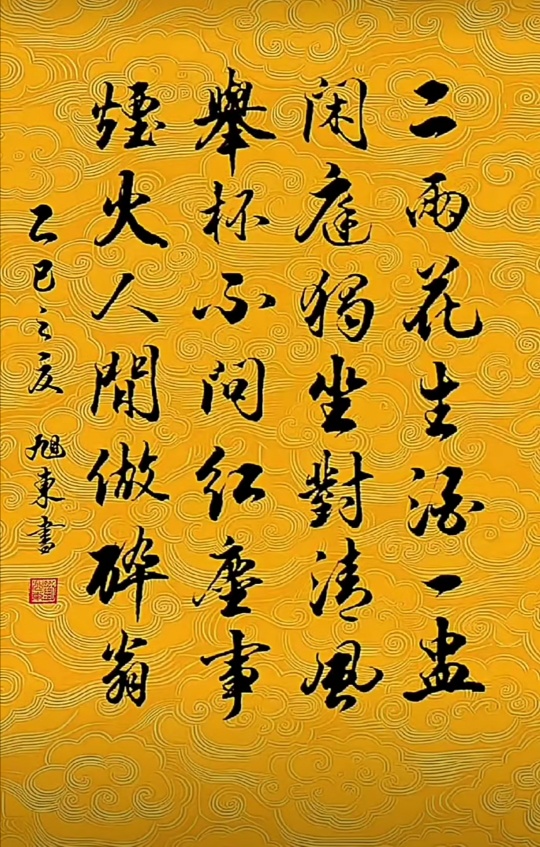 二兩花生酒一盅
閑庭獨坐對清風
舉杯不問紅塵事
煙火人間做醉翁
乙巳之夏 旭東書